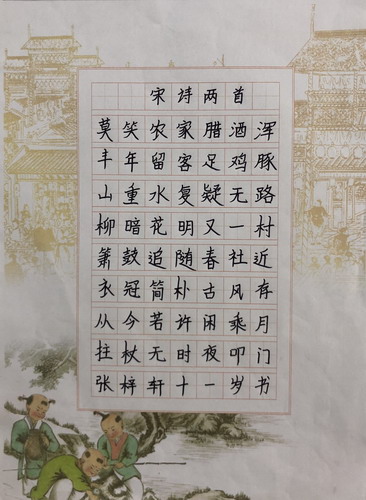 宋诗两首
莫笑农家腊酒浑
丰年留客足鸡豚
山重水复疑无路
柳暗花明又一村
箫鼓追随春社近
衣冠简朴古风存
从今若许闲乘月
拄杖无时夜叩门
张梓轩十一岁书